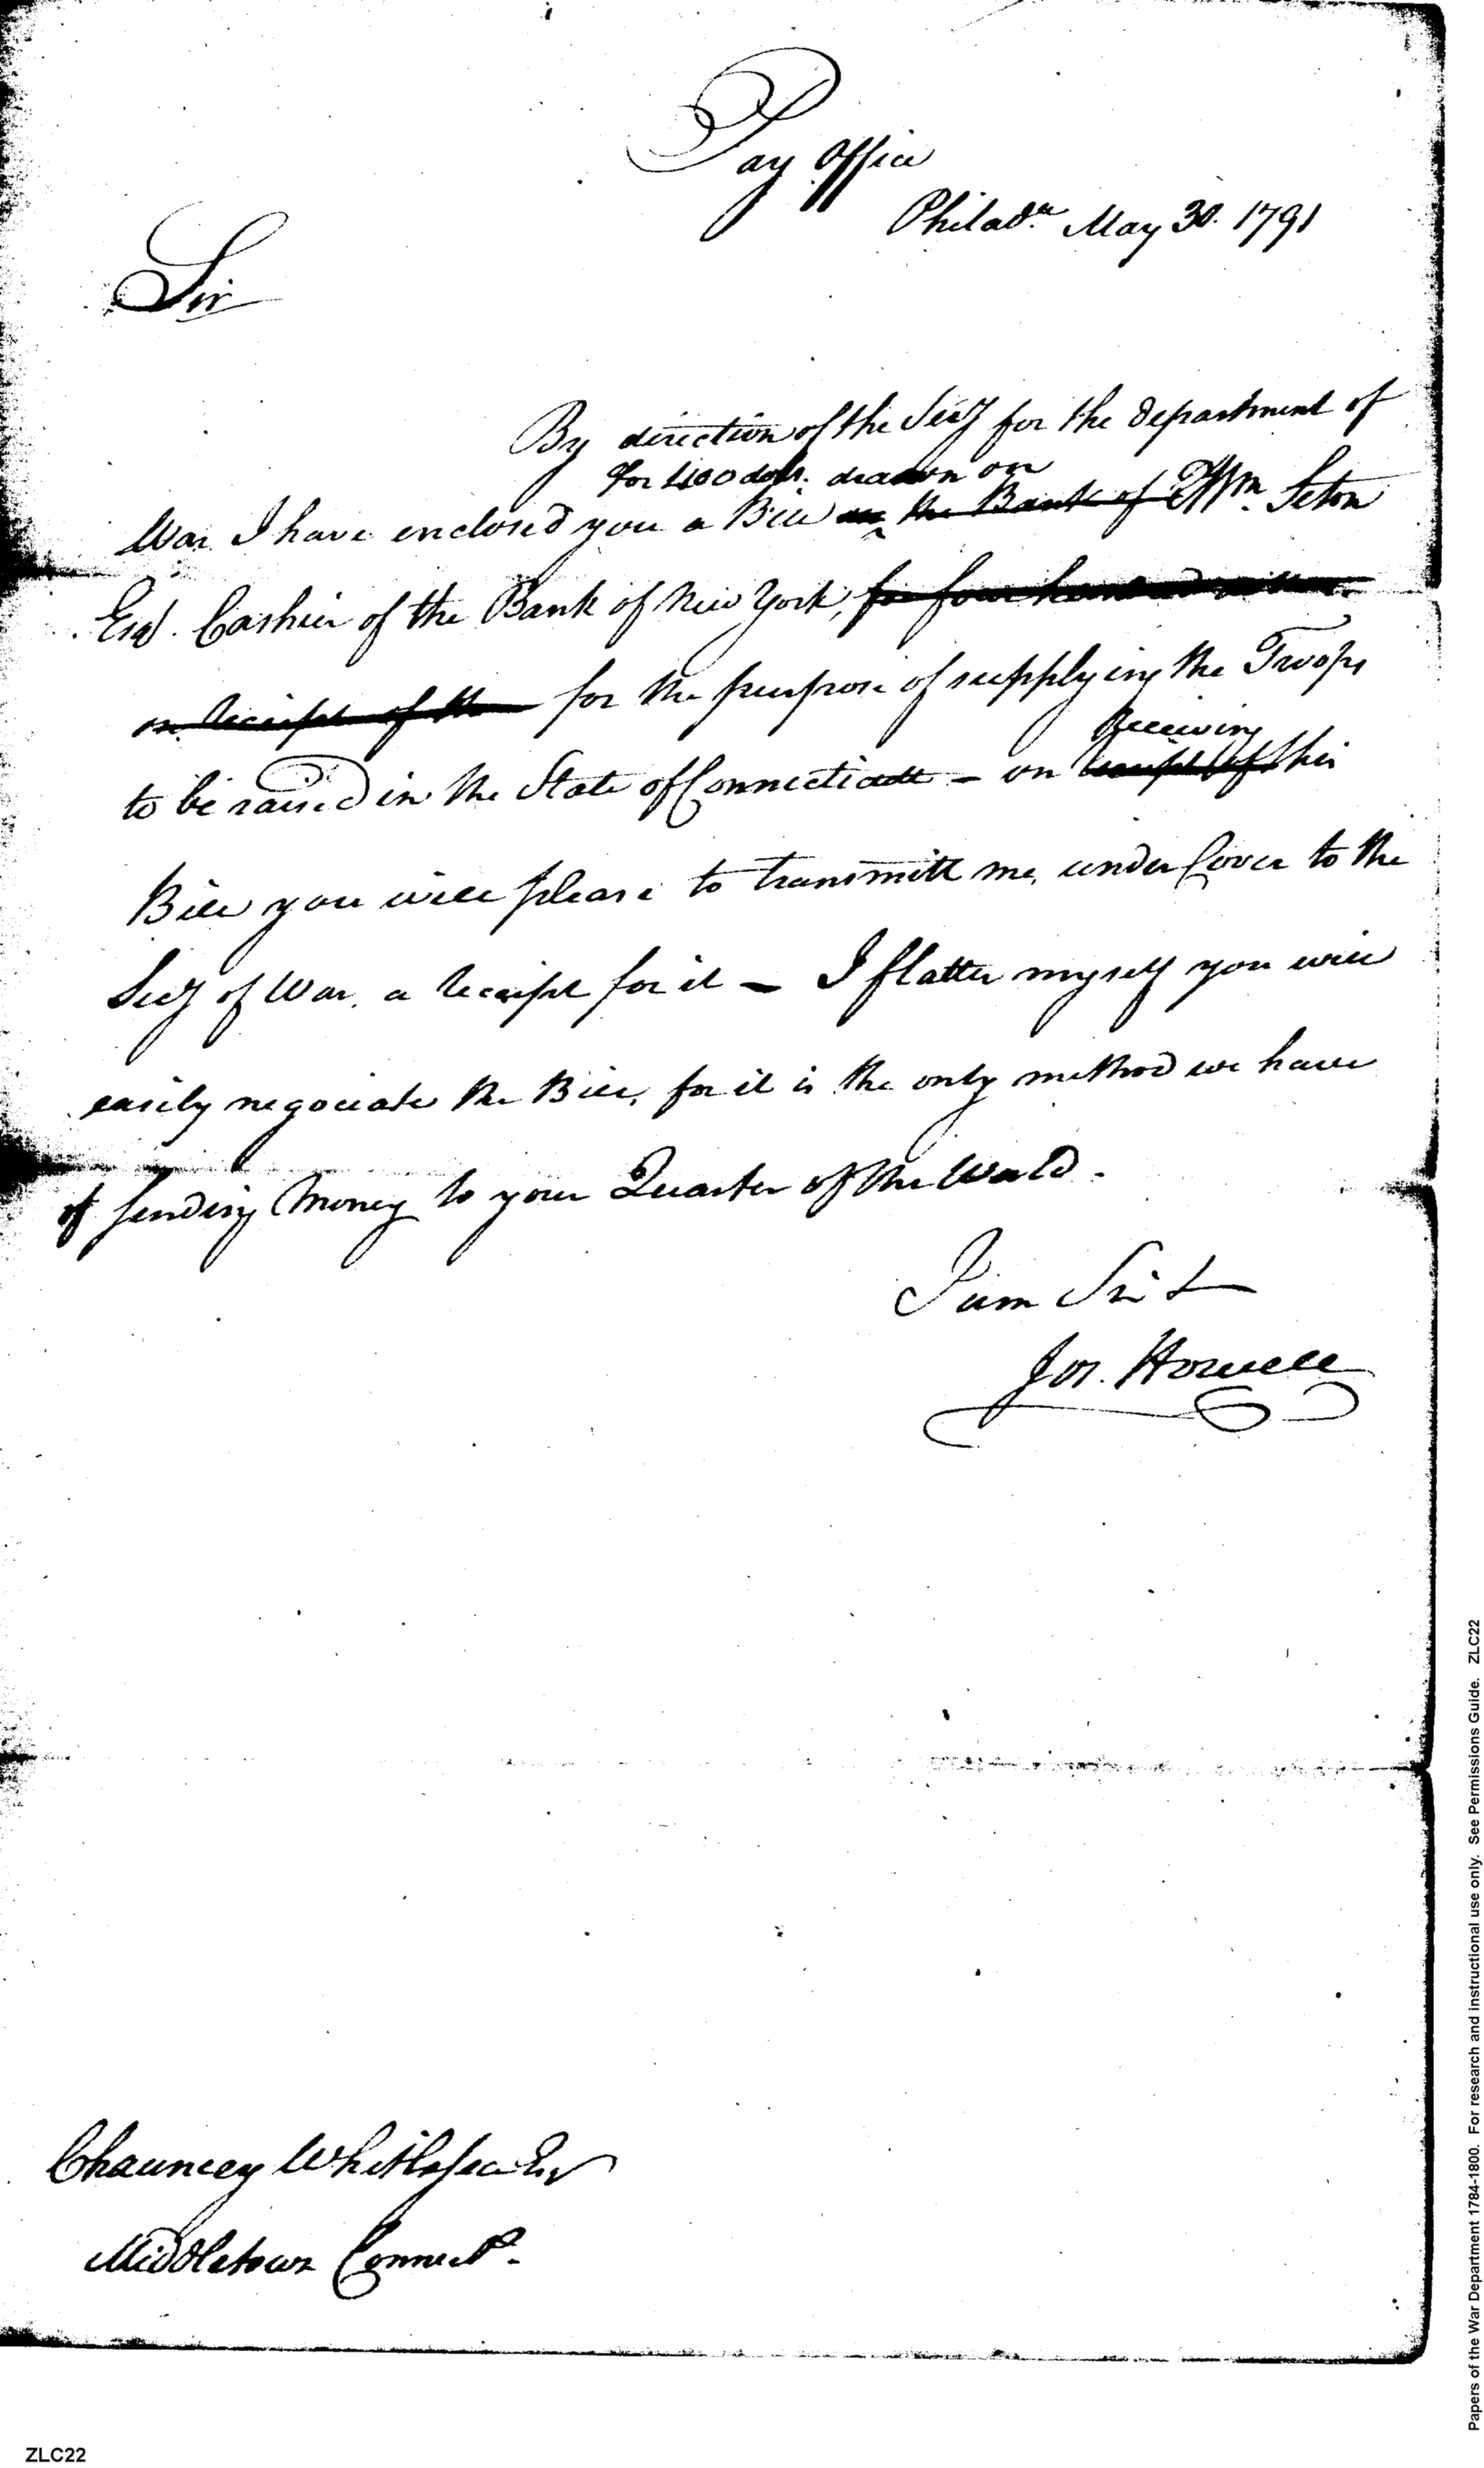 Pay Office
Philad.a May 30. 1791
Sir
By direction of the Secy for the department of
for 400 dolls. drawn on
War I have enclosed you a Bill on the Bank of Wm. Seton
Esqr. Cashier of the Bank of New York, for four hundred
on receipt of the for the purpose of supplying the Troops
Receiving
to be raised in the State of Connecticutt - on receipt of this
Bill you will please to transmitt me, under Cover to the
Secy of War, a receipt for it - I flatter myself you will
easily negociate the Bill, for it is the only method we have
of sending Money to your Quarter of the World.
I am Sir &
Jos. Howell
Chauncey Whitlesea Esqr
Middletown Connect.
Papers of the War Department 1784-1800. For research and instructional use only. See Permissions Guide. ZLC22
ZLC22